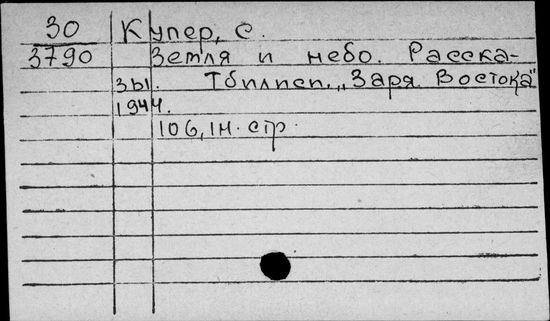 30 Купер, С.
3790 Земля и небо. Расска-
зы. Тбилиси. „Заря Востока"
1944.
106, 1н. стр.